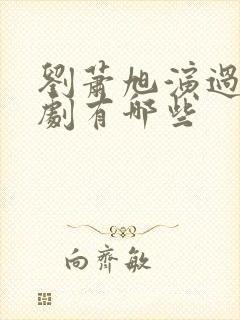 劉蕭旭演過
劇有哪些
向齊敏